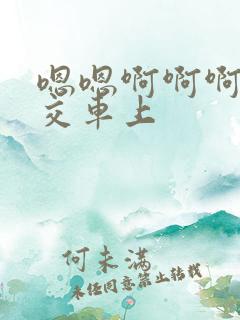 嗯嗯啊啊啊
交车上
何未满
未经同意禁止转载